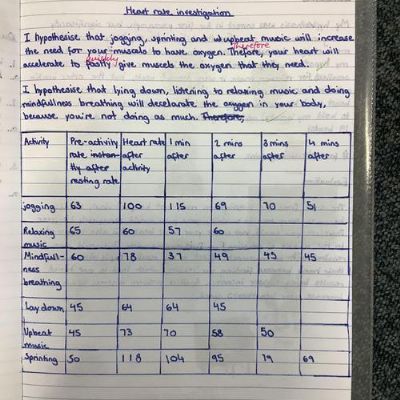 Heart rate investigation
I hypothesise that jogging, sprinting and upbeat music will increase
the need for your muscels to have oxygen. Therefore, your heart will
Therefore
accelerate to quickly give muscels the oxygen that they need.
I hypothesise that lying down, listening to relaxing music and doing
mindfulness breathing will decelarate the oxygen in your body,
because you're not doing as much. Therefore,
Activity Pre-activity Heart rate 1 min 2 mins 3 mins 4 mins
rate instan- after after after after after
tly after activity
resting rate
jogging 63 100 115 69 70 51
Relaxing 65 60 57 60
music
Mindfull- 60 78 37 49 45 45
ness
breathing
Lay down 45 64 64 45
Upbeat 45 73 70 58 50
music
Sprinting 50 118 104 95 79 69